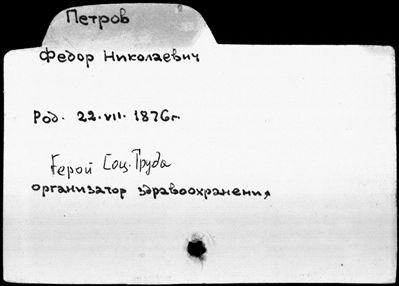 Петров
Федор Николаевич
Род. 22.VII.1876г.
Герой Соц.Труда
организатор здравоохранения